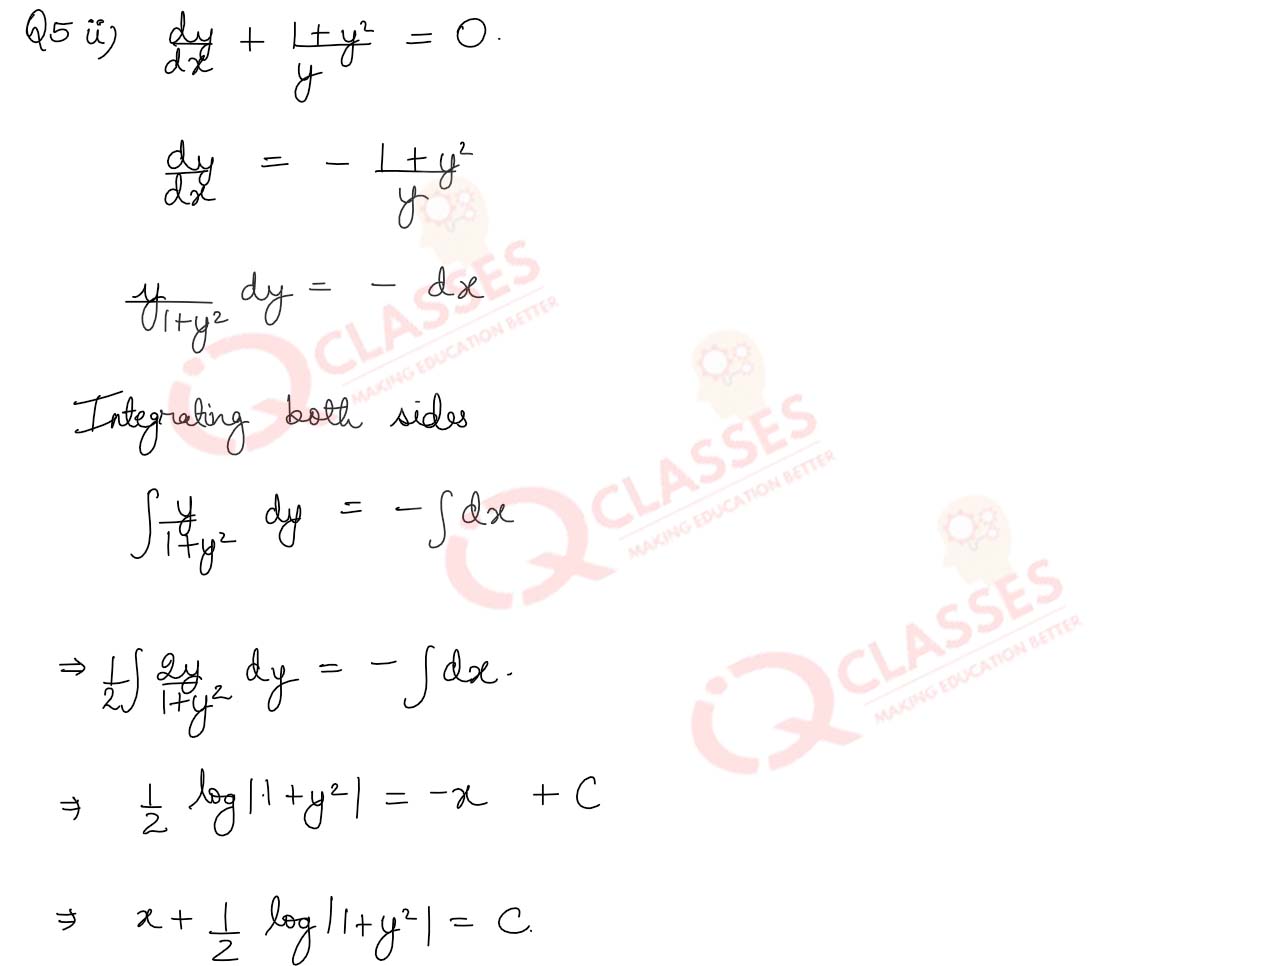 Q5 ii) dy/dx + (1+y²)/y = 0.
dy/dx = - (1+y²)/y
y/(1+y²) dy = - dx
Integrating both sides
∫ y/(1+y²) dy = - ∫ dx
⇒ 1/2 ∫ 2y/(1+y²) dy = - ∫ dx.
⇒ 1/2 log|1+y²| = -x + C
⇒ x + 1/2 log|1+y²| = C.
iQ CLASSES
MAKING EDUCATION BETTER
iQ CLASSES
MAKING EDUCATION BETTER
iQ CLASSES
MAKING EDUCATION BETTER